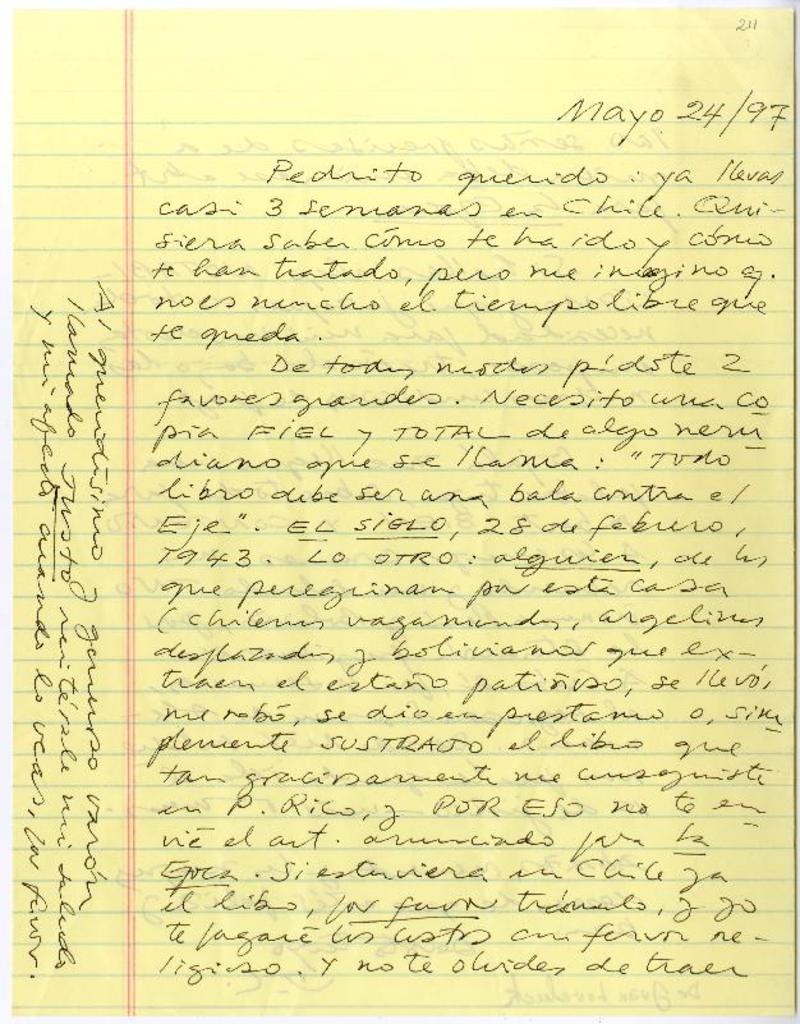 211
Mayo 24/97
Pedrito querido: ya llevas
casi 3 semanas en Chile. Qui-
siera saber cómo te ha ido y cómo
te han tratado, pero me imagino q.
no es muncho el tiempo libre que
te queda.
De todos modos pídote 2
favores grandes. Necesito una co
pia FIEL y TOTAL de algo neru
diano que se llama: "TODO
libro debe ser una bala contra el
Eje". EL SIGLO, 28 de febrero,
1943. LO OTRO: alguien, de los
que peregrinan por esta casa
(chilenos vagamundos, argelinos
desplazados y bolivianos que ex-
traen el estaño patiñoso, se llevó,
me robó, se dio en prestamo o, sim
plemente SUSTRAJO el libro que
tan graciosamente me conseguiste
en P. Rico, y POR ESO no te en
vié el art. anunciado para la
Epoca. Si estuviera en Chile ya
el libro, por favor tráemelo, y yo
te pagaré los costos con fervor re-
ligioso. Y no te olvides de traer
Al queridísimo y generoso varón
llamado JUSTO reitérale mi saludo
y mi afecto cuando lo veas, por favor.